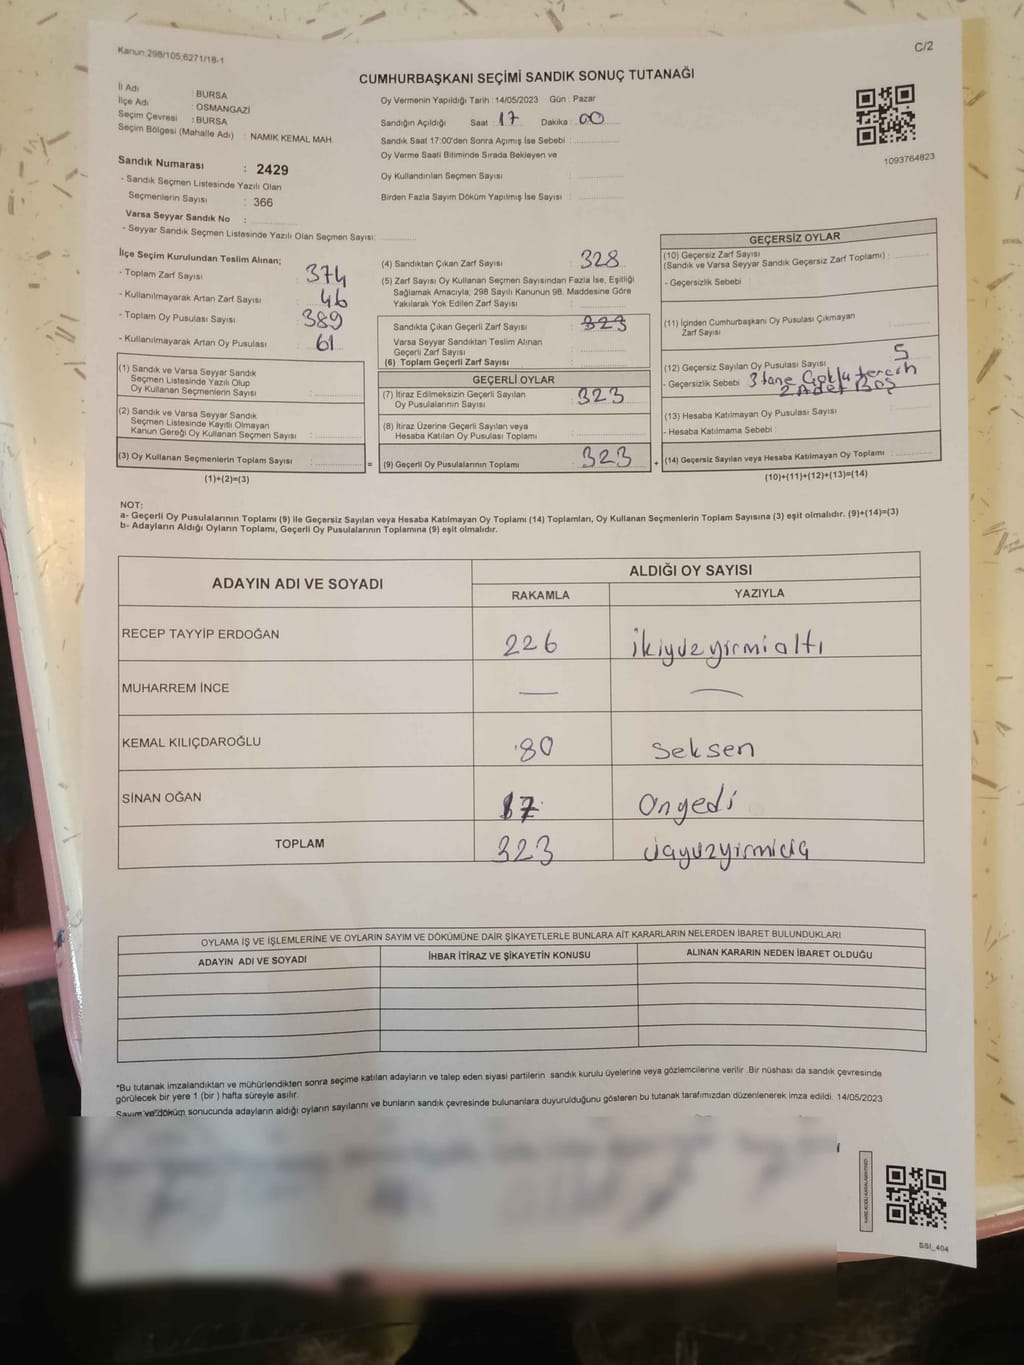 Kanun:298/105;6271/18-1
C/2
CUMHURBAŞKANI SEÇİMİ SANDIK SONUÇ TUTANAĞI
İl Adı : BURSA
İlçe Adı : OSMANGAZİ
Seçim Çevresi : BURSA
Seçim Bölgesi (Mahalle Adı) : NAMIK KEMAL MAH.
Oy Vermenin Yapıldığı Tarih :14/05/2023 Gün : Pazar
Sandığın Açıldığı Saat : 17 Dakika : 00
Sandık Saat 17:00'den Sonra Açımış İse Sebebi :
Oy Verme Saati Bitiminde Sırada Bekleyen ve
Oy Kullandırılan Seçmen Sayısı :
Birden Fazla Sayım Döküm Yapılmış İse Sayısı :
1093764823
Sandık Numarası : 2429
- Sandık Seçmen Listesinde Yazılı Olan
Seçmenlerin Sayısı : 366
Varsa Seyyar Sandık No :
- Seyyar Sandık Seçmen Listesinde Yazılı Olan Seçmen Sayısı:
İlçe Seçim Kurulundan Teslim Alınan;
- Toplam Zarf Sayısı : 374
- Kullanılmayarak Artan Zarf Sayısı : 46
- Toplam Oy Pusulası Sayısı : 389
- Kullanılmayarak Artan Oy Pusulası : 61
(1) Sandık ve Varsa Seyyar Sandık
Seçmen Listesinde Yazılı Olup
Oy Kullanan Seçmenlerin Sayısı :
(2) Sandık ve Varsa Seyyar Sandık
Seçmen Listesinde Kayıtlı Olmayan
Kanun Gereği Oy Kullanan Seçmen Sayısı :
(3) Oy Kullanan Seçmenlerin Toplam Sayısı :
(1)+(2)=(3)
(4) Sandıktan Çıkan Zarf Sayısı : 328
(5) Zarf Sayısı Oy Kullanan Seçmen Sayısından Fazla İse, Eşitliği
Sağlamak Amacıyla; 298 Sayılı Kanunun 98. Maddesine Göre
Yakılarak Yok Edilen Zarf Sayısı :
Sandıkta Çıkan Geçerli Zarf Sayısı : 323
Varsa Seyyar Sandıktan Teslim Alınan
Geçerli Zarf Sayısı :
(6) Toplam Geçerli Zarf Sayısı :
GEÇERLİ OYLAR
(7) İtiraz Edilmeksizin Geçerli Sayılan
Oy Pusulalarının Sayısı : 323
(8) İtiraz Üzerine Geçerli Sayılan veya
Hesaba Katılan Oy Pusulası Toplamı :
= (9) Geçerli Oy Pusulalarının Toplamı : 323 +
GEÇERSİZ OYLAR
(10) Geçersiz Zarf Sayısı
(Sandık ve Varsa Seyyar Sandık Geçersiz Zarf Toplamı) :
- Geçersizlik Sebebi :
(11) İçinden Cumhurbaşkanı Oy Pusulası Çıkmayan
Zarf Sayısı :
(12) Geçersiz Sayılan Oy Pusulası Sayısı : 5
- Geçersizlik Sebebi : 3 tane Çoklu tercih
2 Adet Boş
(13) Hesaba Katılmayan Oy Pusulası Sayısı :
- Hesaba Katılmama Sebebi :
(14) Geçersiz Sayılan veya Hesaba Katılmayan Oy Toplamı :
(10)+(11)+(12)+(13)=(14)
NOT:
a- Geçerli Oy Pusulalarının Toplamı (9) ile Geçersiz Sayılan veya Hesaba Katılmayan Oy Toplamı (14) Toplamları, Oy Kullanan Seçmenlerin Toplam Sayısına (3) eşit olmalıdır. (9)+(14)=(3)
b- Adayların Aldığı Oyların Toplamı, Geçerli Oy Pusulalarının Toplamına (9) eşit olmalıdır.
ADAYIN ADI VE SOYADI
ALDIĞI OY SAYISI
RAKAMLA YAZIYLA
RECEP TAYYİP ERDOĞAN 226 ikiyüzyirmialtı
MUHARREM İNCE — —
KEMAL KILIÇDAROĞLU 80 Seksen
SİNAN OĞAN 17 Onyedi
TOPLAM 323 üçyüzyirmiüç
OYLAMA İŞ VE İŞLEMLERİNE VE OYLARIN SAYIM VE DÖKÜMÜNE DAİR ŞİKAYETLERLE BUNLARA AİT KARARLARIN NELERDEN İBARET BULUNDUKLARI
ADAYIN ADI VE SOYADI İHBAR İTİRAZ VE ŞİKAYETİN KONUSU ALINAN KARARIN NEDEN İBARET OLDUĞU
*Bu tutanak imzalandıktan ve mühürlendikten sonra seçime katılan adayların ve talep eden siyasi partilerin sandık kurulu üyelerine veya gözlemcilerine verilir .Bir nüshası da sandık çevresinde
görülecek bir yere 1 (bir ) hafta süreyle asılır.
Sayım ve döküm sonucunda adayların aldığı oyların sayılarını ve bunların sandık çevresinde bulunanlara duyurulduğunu gösteren bu tutanak tarafımızdan düzenlenerek imza edildi. 14/05/2023
SSI_404